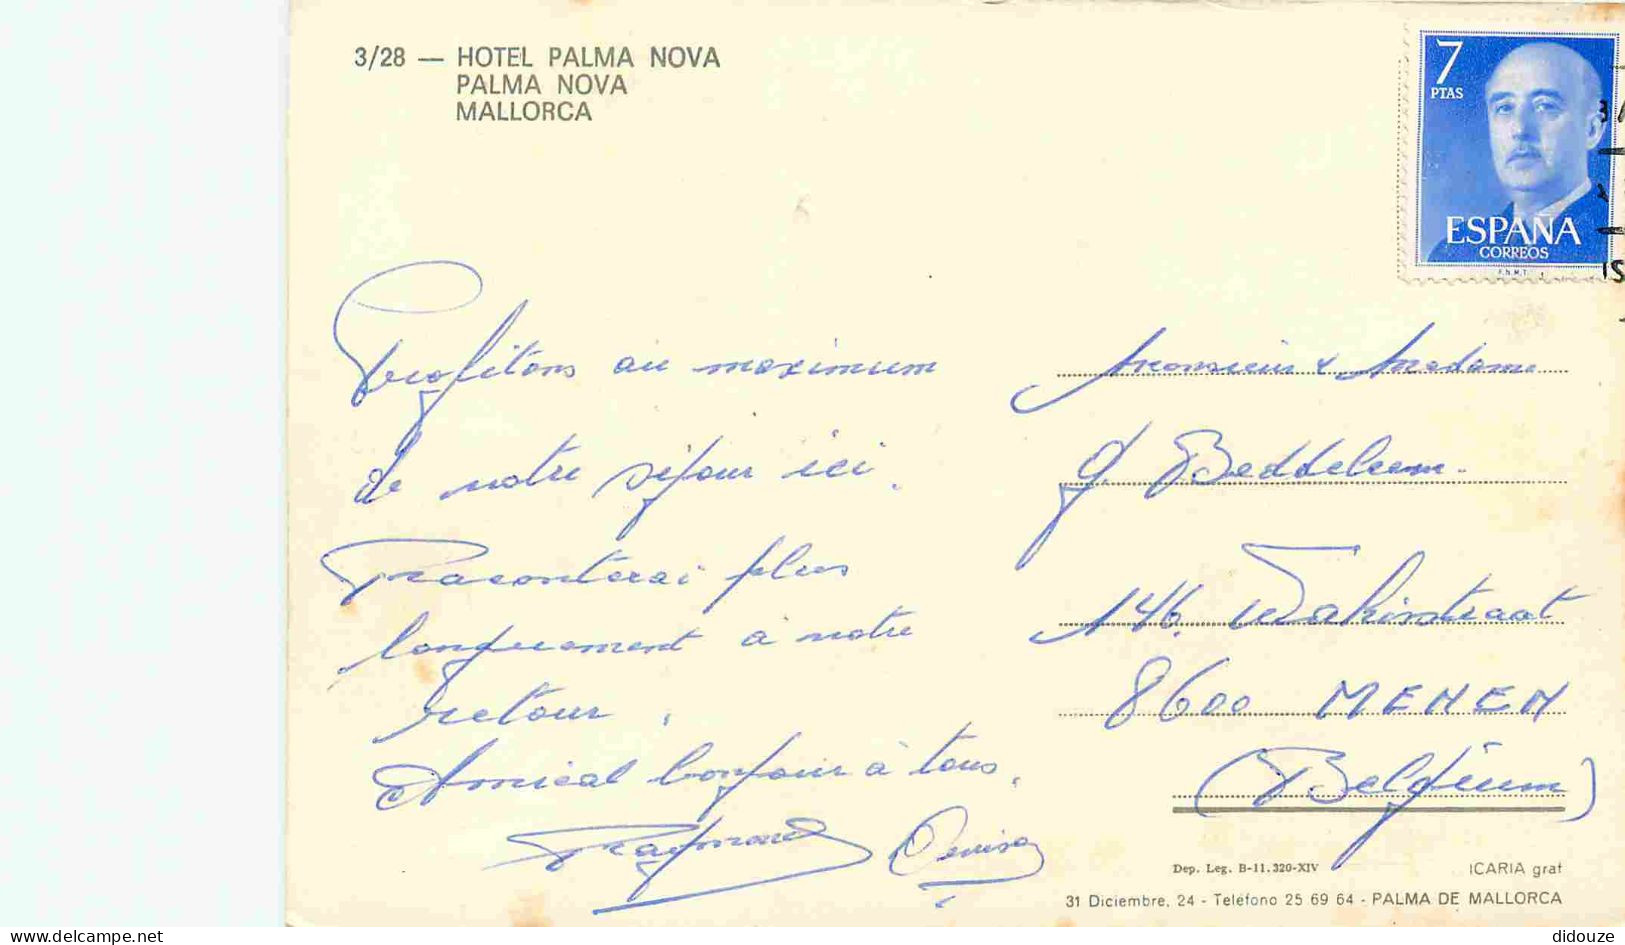 3/28 — HOTEL PALMA NOVA
PALMA NOVA
MALLORCA
7
PTAS
ESPAÑA
CORREOS
F.N.M.T.
Profitons au maximum
de notre séjour ici.
Raconterai plus
longuement à notre
retour.
Amical bonjour à tous.
Raymond Denise
Monsieur & Madame
G. Beddeleem.
146, Wahisstraat
8600 MENEN
(Belgïeum)
Dep. Leg. B-11.320-XIV
ICARIA graf
31 Diciembre, 24 - Teléfono 25 69 64 - PALMA DE MALLORCA
www.delcampe.net
didouze